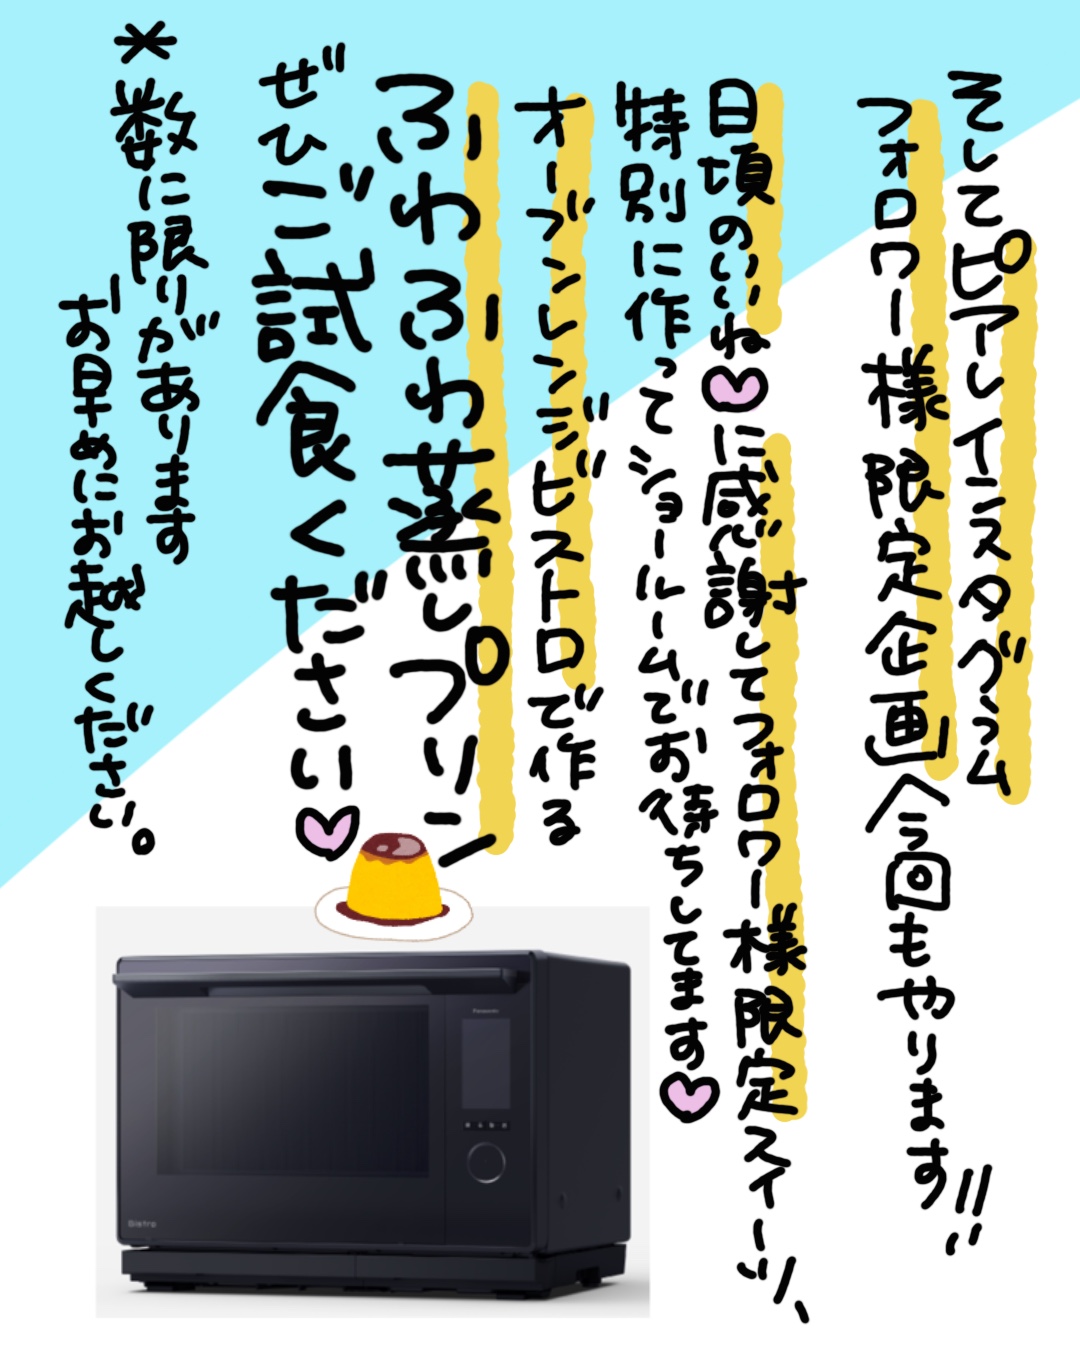 そしてピアレインスタグラム
フォロワー様限定企画今回もやります!!
日頃のいいね♡に感謝してフォロワー様限定スイーツ、
特別に作ってショールームでお待ちしてます♡
オーブンレンジビストロで作る
ふわふわ蒸しプリン
ぜひご試食ください♡
*数に限りがあります
お早めにお越しください。
Panasonic
Bistro